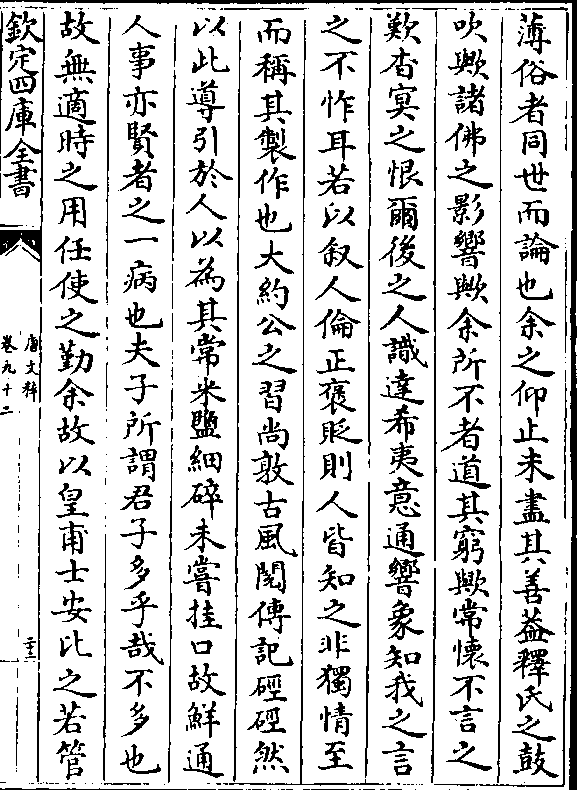 薄俗者同世而論也余之仰止未盡其善益釋氏之鼓
吹歟諸佛之影響歟余所不者道其窮歟常懷不言之
歎杳冥之恨爾後之人識達希夷意通響象知我之言
之不怍耳若以叙人倫正褒貶則人皆知之非獨情至
而稱其製作也大約公之習尚敦古風閱傳記硜硜然
以此導引於人以為其常米鹽細碎未嘗挂口故鮮通
人事亦賢者之一病也夫子所謂君子多乎哉不多也
故無適時之用任使之勤余故以皇甫士安比之若管
欽定四庫全書
唐文粹
卷九十二
二十三